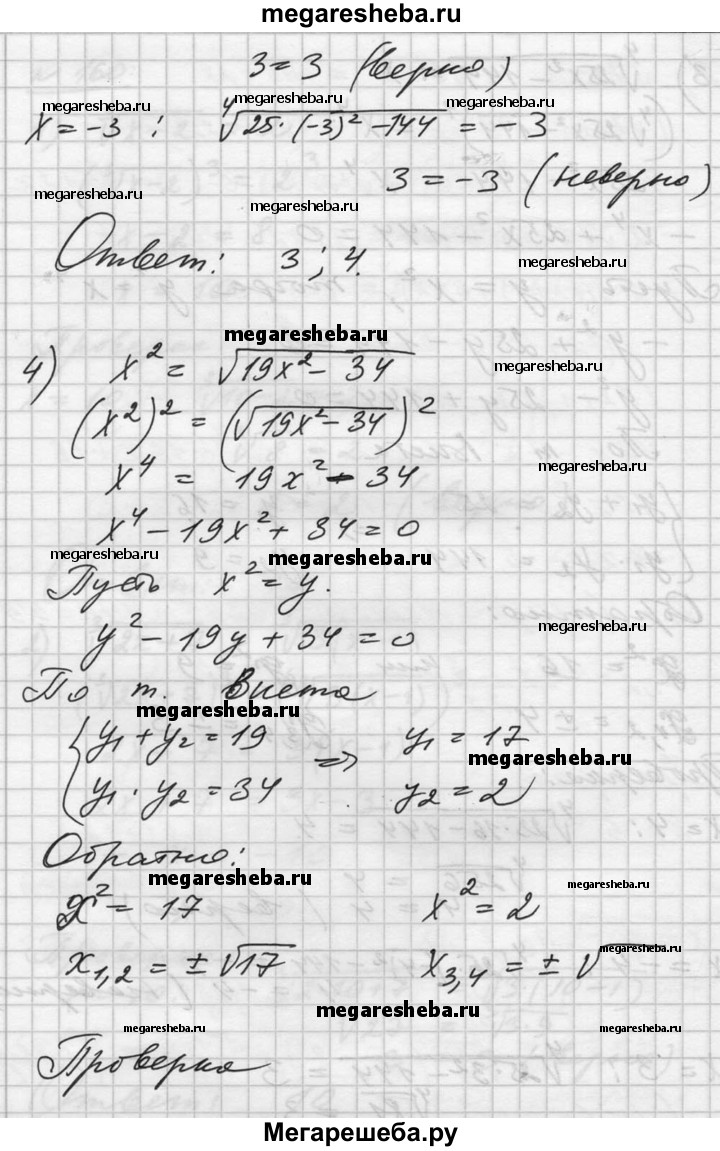 megaresheba.ru
3 = 3 (верно)
megaresheba.ru megaresheba.ru megaresheba.ru
x = -3 : ∜(25·(-3)² - 144) = -3
3 = -3 (неверно)
megaresheba.ru
megaresheba.ru
Ответ: 3; 4.
megaresheba.ru
megaresheba.ru
4) x² = √(19x² - 34)
megaresheba.ru
(x²)² = (√(19x² - 34))²
x⁴ = 19x² - 34
megaresheba.ru
x⁴ - 19x² + 34 = 0
megaresheba.ru megaresheba.ru
Пусть x² = y.
y² - 19y + 34 = 0
megaresheba.ru
По т. Виета
megaresheba.ru
{ y₁ + y₂ = 19 ⇒ y₁ = 17
megaresheba.ru
y₁ · y₂ = 34 y₂ = 2
Обратно:
megaresheba.ru megaresheba.ru
x² = 17 x² = 2
megaresheba.ru
x₁,₂ = ± √17 x₃,₄ = ± √
megaresheba.ru
megaresheba.ru megaresheba.ru
Проверка
Мегарешеба.ру